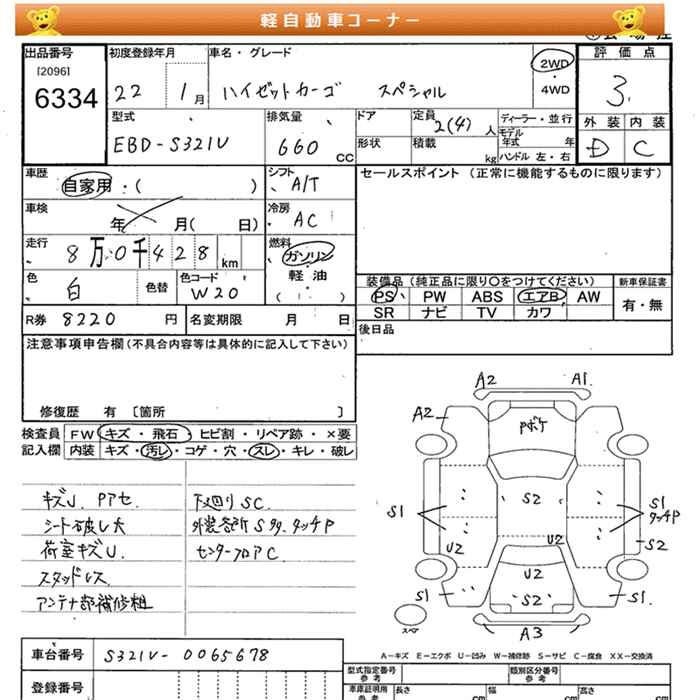 軽自動車コーナー
出品番号
[2096]
6334
初度登録年月
22 1月
車名・グレード
ハイゼットカーゴ スペシャル
2WD
・
4WD
評価点
3.
外装 内装
D C
型式
EBD-S321V
排気量
660 CC
ドア
形状
定員 2(4) 人
積載 kg
ディーラー・並行
モデル
年式 年
ハンドル 左・右
車歴
自家用・( )
シフト
A/T
車検
年 月( 日)
冷房
AC
走行
8万0千428 km
燃料
ガソリン
軽油
( )
色
白
色替
色コード
W20
R券 8220 円
名変期限 月 日
セールスポイント (正常に機能するものに限ります)
装備品(純正品に限り○をつけてください)
PS PW ABS エアB AW
SR ナビ TV カワ
新車保証書
有・無
後日品
注意事項申告欄(不具合内容等は具体的に記入して下さい)
修復歴 有 [箇所 ]
検査員
記入欄
FW キズ・飛石・ヒビ割・リペア跡・×要
内装 キズ・汚レ・コゲ・穴・スレ・キレ・破レ
キズU. Pアセ.
シート破レ大
荷室キズU.
スタッドレス
アンテナ部補修粗
下廻りSC.
外装各所S多タッチP
センターフロアC
A2 A1.
A2
Pボケ
S1
S2
S1
タッチP
S2
U2
U2
U2
S2
S1
S1.
A3
スペア
A-キズ E-エクボ U-凹み W-補修跡 S-サビ C-腐食 XX-交換済
車台番号
S321V-0065678
登録番号
型式指定番号
参考
類別区分番号
参考
車庫証明用
参考
長さ cm
幅 cm
高さ cm